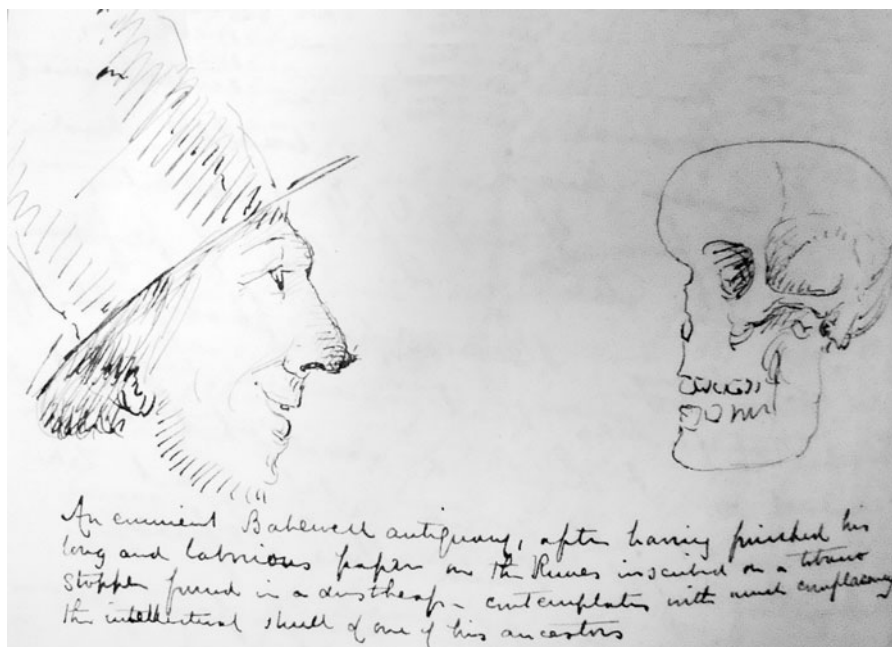 An eminent Bakewell antiquary, after having finished his
long and laborious paper on the Runes inscribed on a tobacco
stopper found in a dustheap - contemplates with much complacency
the intellectual skull of one of his ancestors